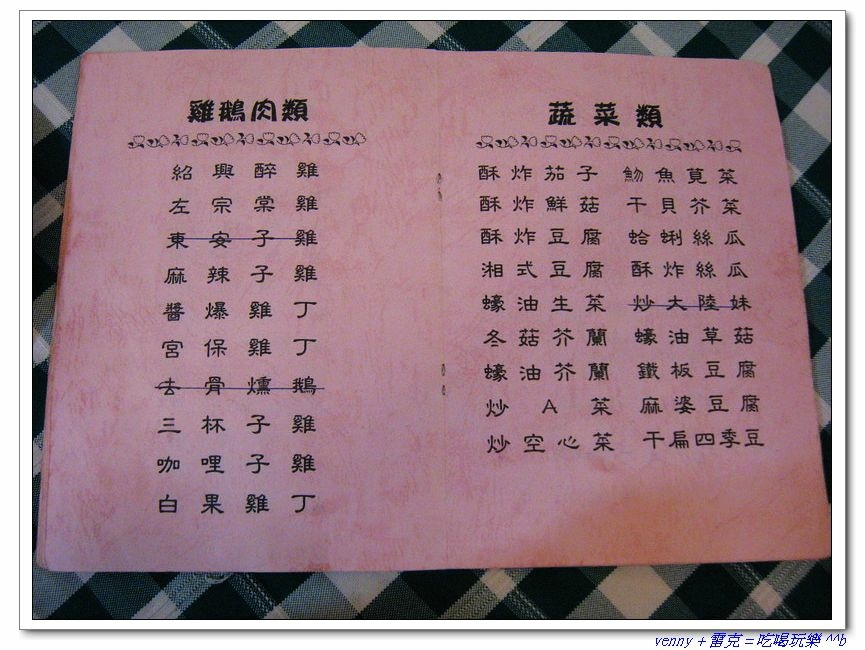 雞鵝肉類
紹興醉雞
左宗棠雞
東安子雞
麻辣子雞
醬爆雞丁
宮保雞丁
去骨燻鵝
三杯子雞
咖哩子雞
白果雞丁
蔬菜類
酥炸茄子 魩魚莧菜
酥炸鮮菇 干貝芥菜
酥炸豆腐 蛤蜊絲瓜
湘式豆腐 酥炸絲瓜
蠔油生菜 炒大陸妹
冬菇芥蘭 蠔油草菇
蠔油芥蘭 鐵板豆腐
炒A菜 麻婆豆腐
炒空心菜 干扁四季豆
venny + 雷克 = 吃喝玩樂 ^^b